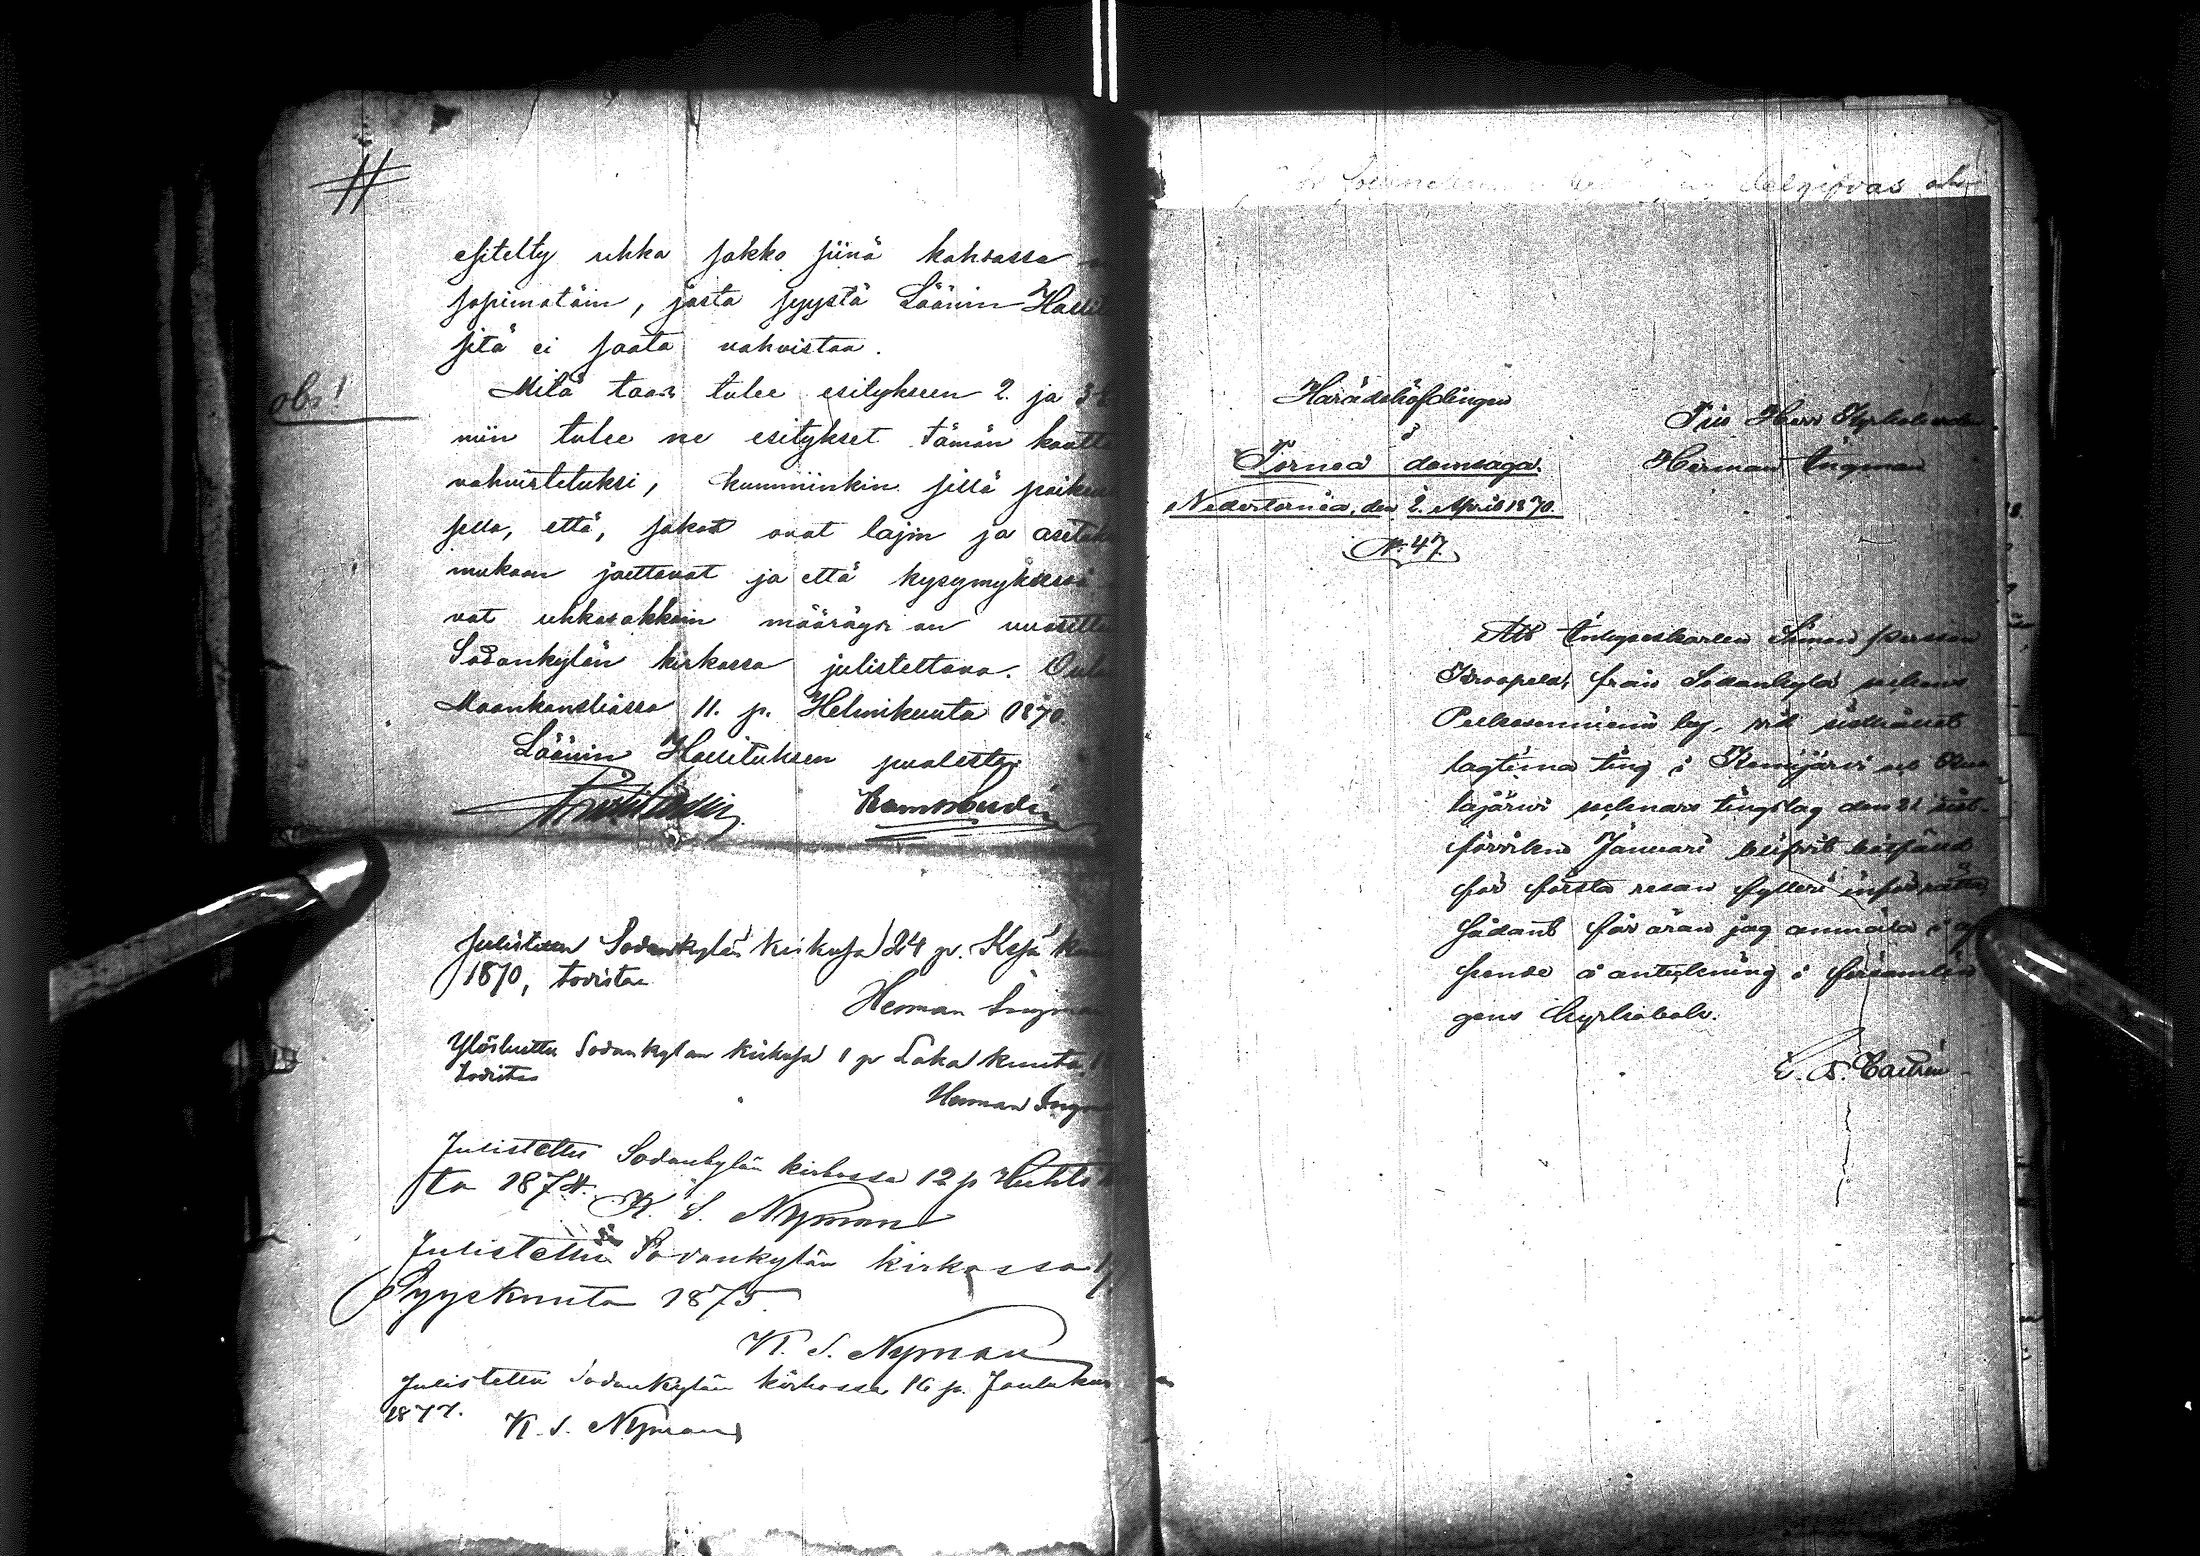 esitelty uhka sakko siinä kohdassa
sopimatoin, josta syystä Läänin Halli
sitä ei saata vahvistaa.
obs!
Mitä taas tulee esitykseen 2. ja 3
niin tulee ne esitykset tämän kautta
vahvistetuksi, kumminkin sillä
sella, että, sakot ovat lajin ja asetuk
mukaan jaettavat ja että kysymyksessä
vat uhkasakkoin määräys on vuosittain
Sodankylän kirkossa julistettava. Oulu
Maankansliassa 11. p. Helmikuuta 1870.
Läänin Hallituksen puolesta
Julistettu Sodankylän kirkossa 24 p. Kesä
1870, todistaa
Herman Ingman
Ylösluettu Sodankylän kirkossa 1 p Loka kuuta
todistaa
Herman Ingman
Julistettu Sodankylän kirkossa 12 p Huhti
ta 1874.
K. S. Nyman
Julistettu Sodankylän kirkossa
Syyskuuta 1875.
K. S. Nyman
Julistettu Sodankylän kirkossa 16 p. Jouluku
1877.
K. S. Nyman
delgifvas
Häradshöfdingen
i
Torneå domsaga.
Nedertorneå, den 2. April 1870.
No. 47
Herr Kyrkoherden
Herman Ingman
Att Inhyseskarlen Simon Persson
från Sodankylä sockens
Pelkosenniemi by, vid
lagtima ting i Kemijärvi och Kuo
lajärvi socknars tingslag den 21 sist-
förvikne Januari blifvit
för första resan fylleri inför rätta,
sådant får äran jag anmäla i af
seende å anteckning i församlin
gens kyrkobok.
Castrén